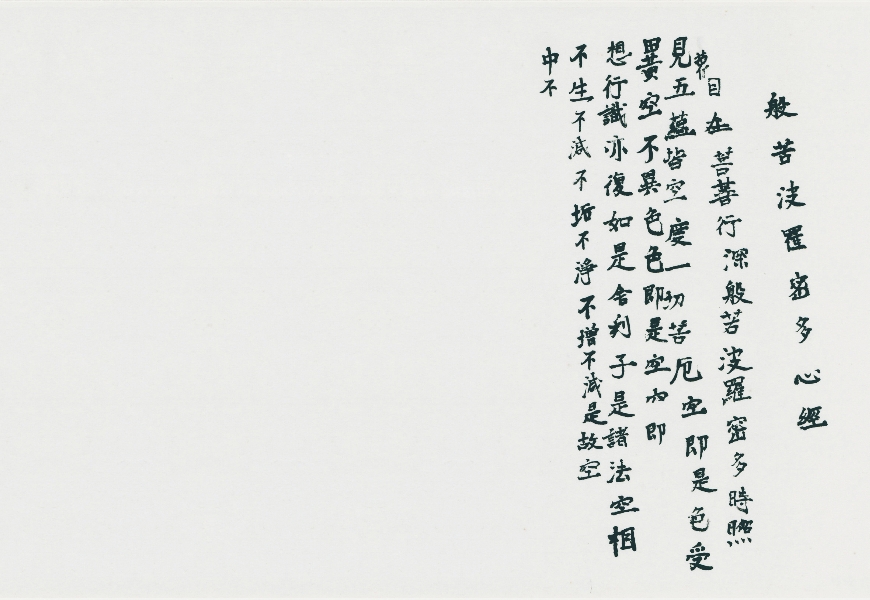 般苦波羅密多心經
目在菩薩行深般苦波羅密多時照
見五蘊皆空度一切苦厄空即是色受
異空不異色色即是空內即
想行識亦復如是舍利子是諸法空相
不生不減不垢不淨不增不減是故空
中不